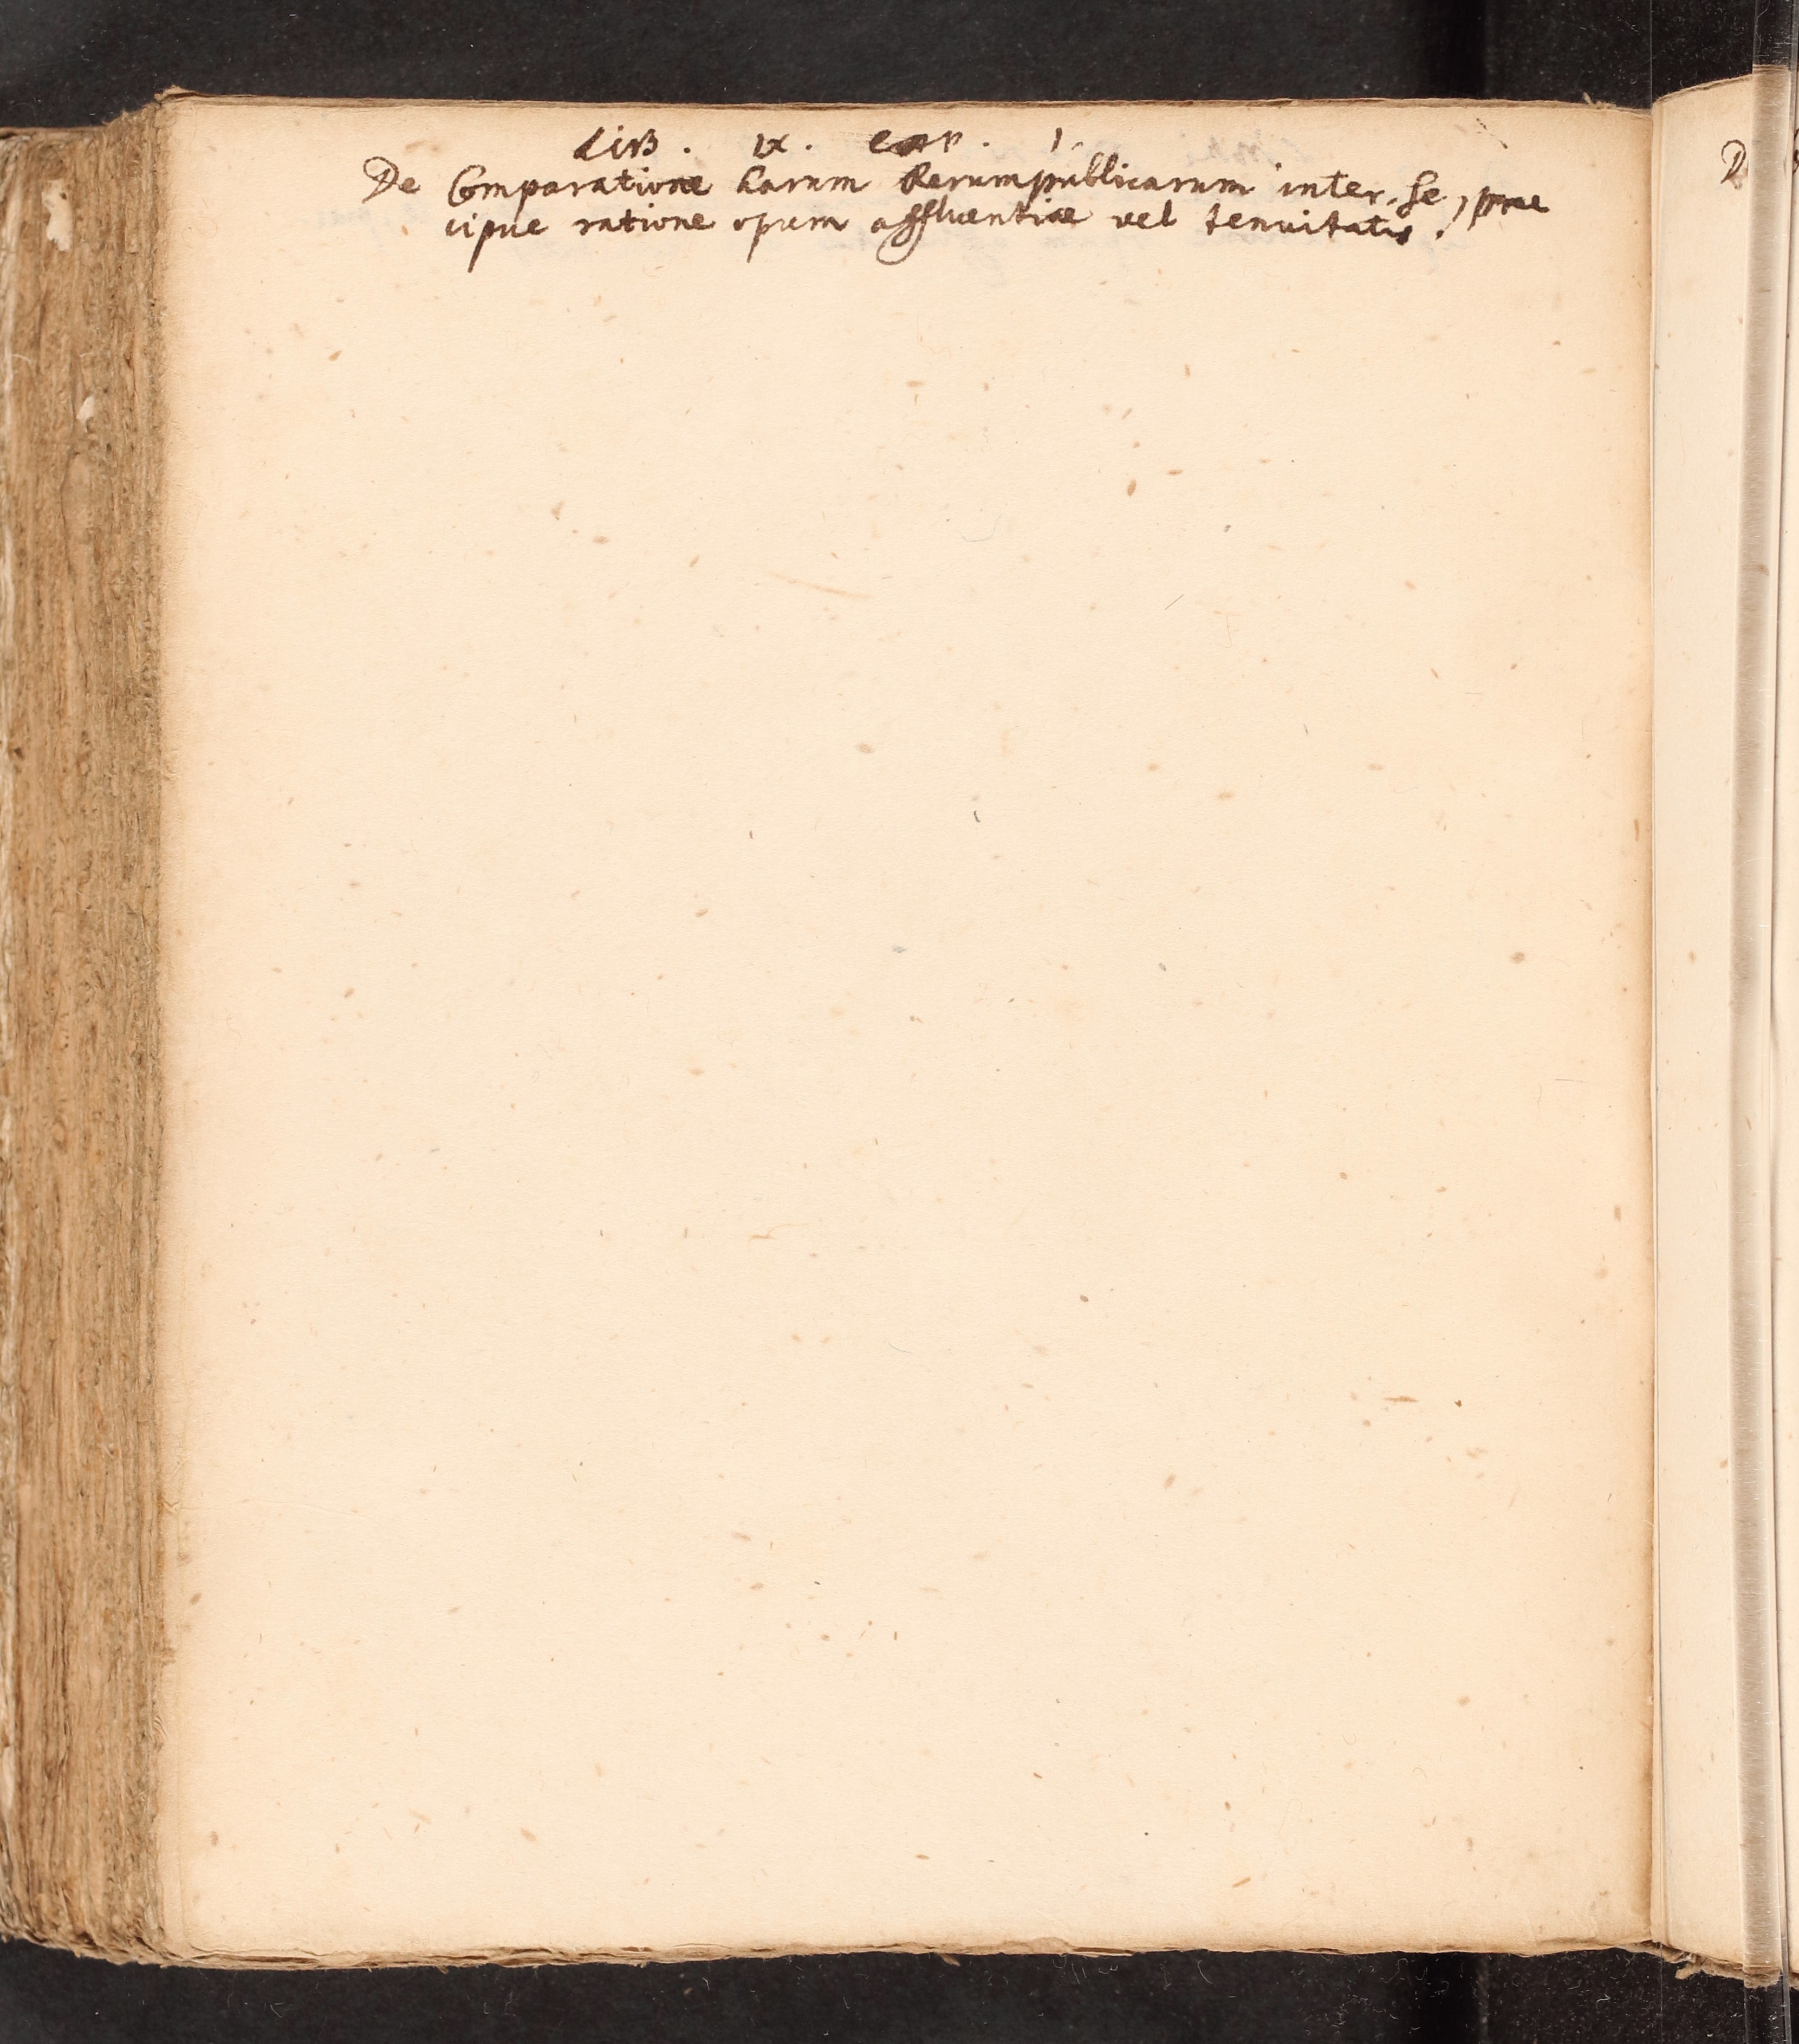 Lib. IX. cap. 1.
De Comparatione harum Rerumpublicarum inter se, prae
cipue ratione opum affluentiae vel tenuitatis.
D